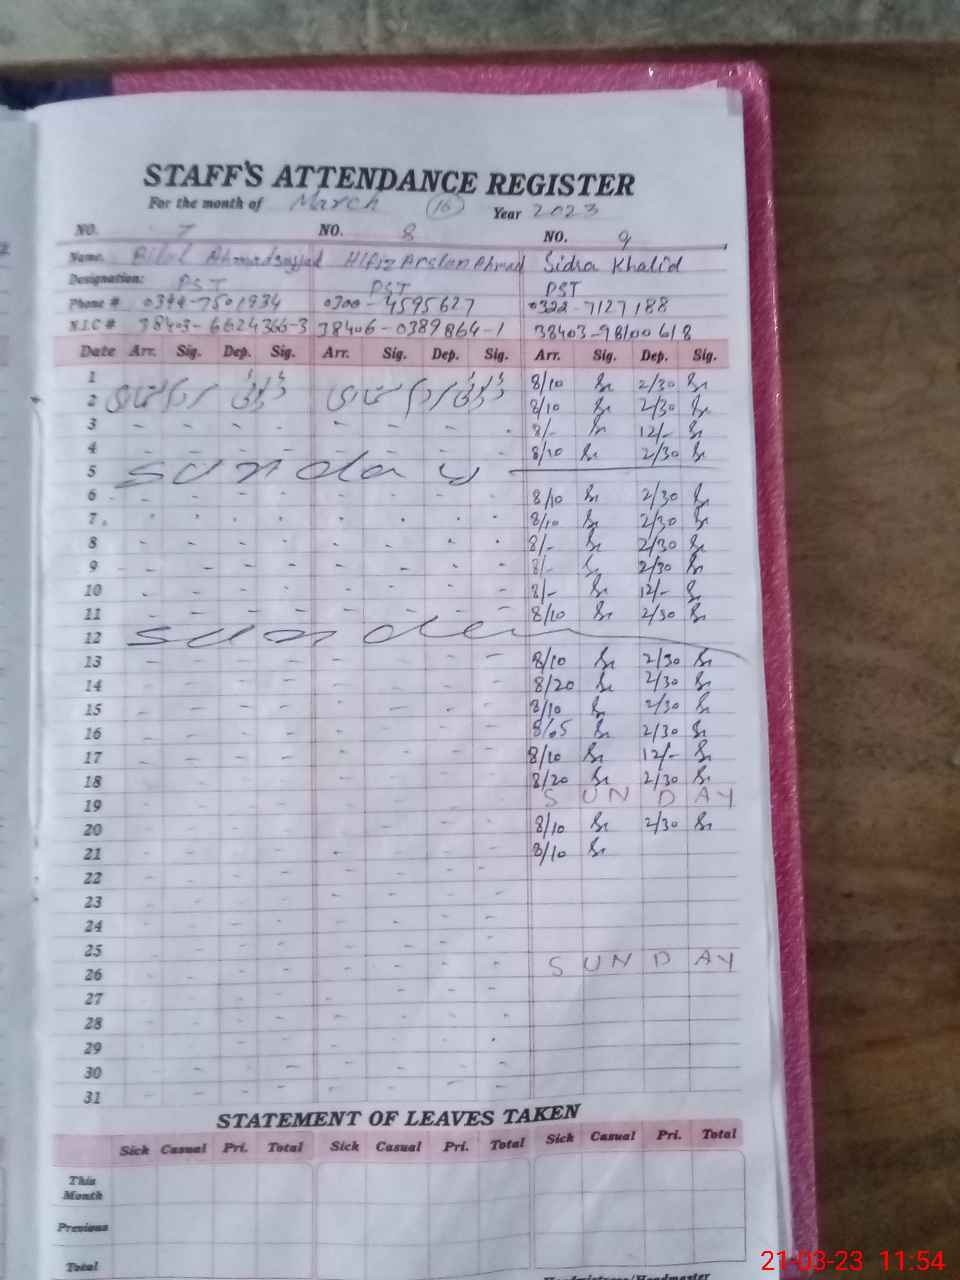 STAFF'S ATTENDANCE REGISTER
For the month of March (16) Year 2023
NO. 7 NO. 8 NO. 9
Name. Bilal Ahmad Sajjad Hifiz Arslan Ahmad Sidra Khalid
Designation: PST PST PST
Phone # 0344-7501934 0300-4595627 0322-7127188
N.I.C # 38403-6624366-3 38406-0389864-1 38403-98100618
Date Arr. Sig. Dep. Sig. Arr. Sig. Dep. Sig. Arr. Sig. Dep. Sig.
1 8/10 2/30
2 8/10 2/30
3 - - - - - - - 8/- 12/-
4 - - - - - - - - 8/10 2/30
5 Sunday
6 - - - - - - - - 8/10 2/30
7 - - - - - - - - 8/10 2/30
8 - - - - - - - - 8/- 2/30
9 - - - - - - - - 8/- 2/30
10 - - - - - - - - 8/- 12/-
11 - - - - - - - - 8/10 2/30
12
13 - - - - - - - - 8/10 2/30
14 - - - - - - - - 8/20 2/30
15 - - - - - - - - 8/10 2/30
16 - - - - - - - - 8/05 2/30
17 - - - - - - - - 8/10 12/-
18 - - - - - - - - 8/20 2/30
19 - - - - - - - - SUNDAY
20 - - - - - - - - 8/10 2/30
21 - - - - - - - - 8/10
22 - - - - - - - -
23 - - - - - - - -
24 - - - - - - - -
25 - - - - - - - -
26 - - - - - - - - SUNDAY
27 - - - - - - - -
28 - - - - - - - -
29 - - - - - - - -
30 - - - - - - - -
31 - - - - - - - -
STATEMENT OF LEAVES TAKEN
Sick Casual Pri. Total Sick Casual Pri. Total Sick Casual Pri. Total
This
Month
Previous
Total
Headmistress/Headmaster
21-03-23 11:54